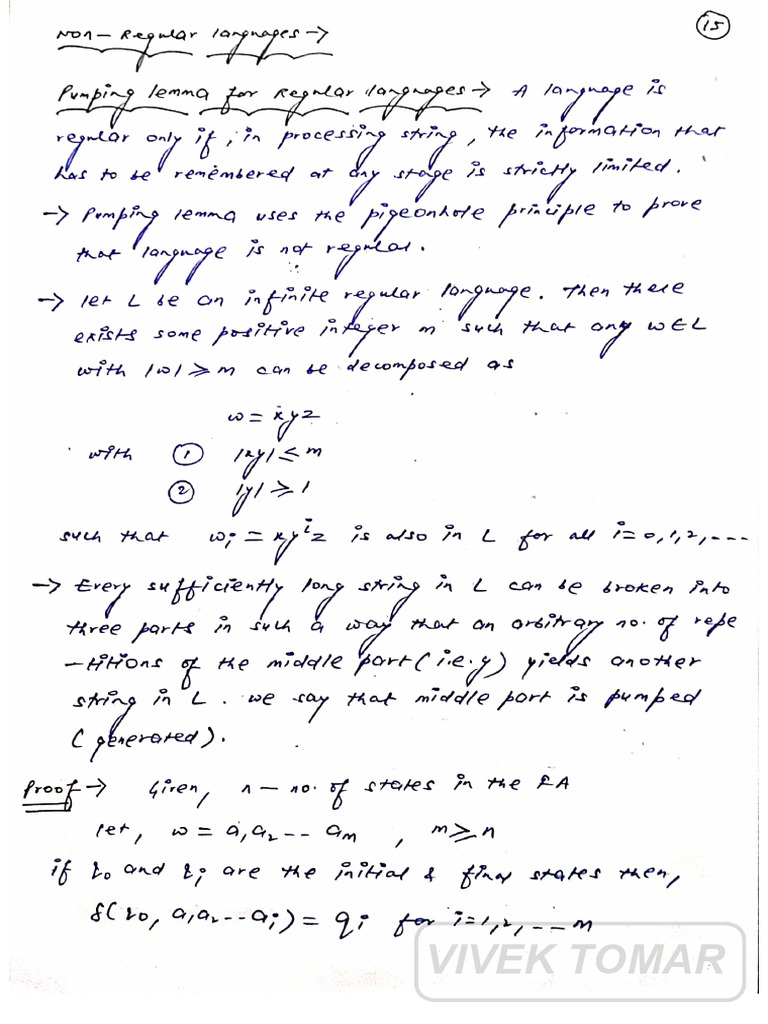 15
Non-Regular languages →
Pumping lemma for Regular languages → A language is
regular only if, in processing string, the information that
has to be remembered at any stage is strictly limited.
→ Pumping lemma uses the pigeonhole principle to prove
that language is not regular.
→ let L be an infinite regular language. Then there
exists some positive integer m such that any w ∈ L
with |w| ≥ m can be decomposed as
w = xyz
with ① |xy| ≤ m
② |y| ≥ 1
such that wᵢ = xyⁱz is also in L for all i = 0,1,2,----
→ Every sufficiently long string in L can be broken into
three parts in such a way that an arbitrary no. of repe
-titions of the middle part (i.e. y) yields another
string in L. we say that middle part is pumped
(generated).
Proof → Given, n – no. of states in the FA
let, w = a₁a₂ --- aₘ , m ≥ n
if q₀ and qᵢ are the initial & final states then,
δ(q₀, a₁a₂--aᵢ) = qᵢ for i=1,2,---m
VIVEK TOMAR